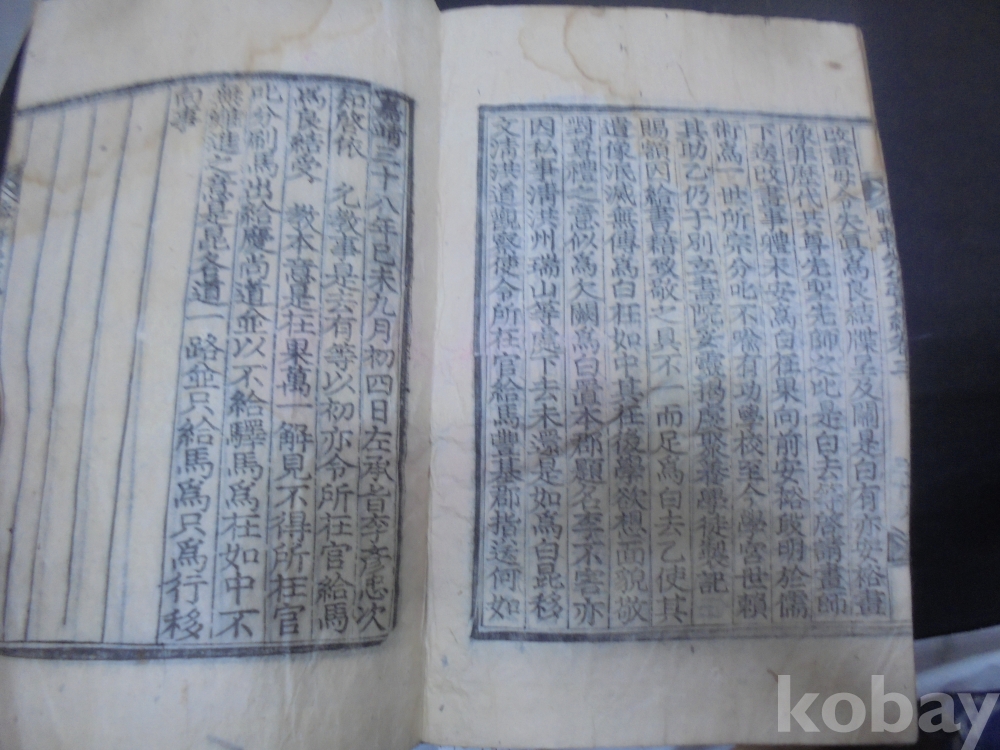 改畫毋令失眞爲良結牒呈及關是白有亦安裕畫
像非歷代共尊先聖先師之比是白去等啓請畫師
下送改畫事體未安爲白在果向前安裕啟明於儒
術爲一世所宗分叱不喩有功學校至今學宮世賴
其助乙仍于別立書院妥靈揭虔聚養學徒製記
賜額因給書籍敬敬之具不一而足爲白去乙使其
遺像泯滅無傳爲白在如中其在後學欲想面貌敬
對尊禮之意似爲欠闕爲白置本郡題名李不害亦
因私事淸洪州瑞山等處下去未還是如爲白昆移
文淸洪道觀察使令所在官給馬豐基郡指送何如
嘉靖三十八年己未九月初四日左承旨李彦忠次
知啓依 允敎事是去有等以初亦令所在官給馬
爲良結受 敎本意是在果萬一解見不得所在官
叱分刷馬出給慶尚道並以不給驛馬爲在如中不
無難進之意是昆各道一路並只給馬爲只爲行移
向事
kobay